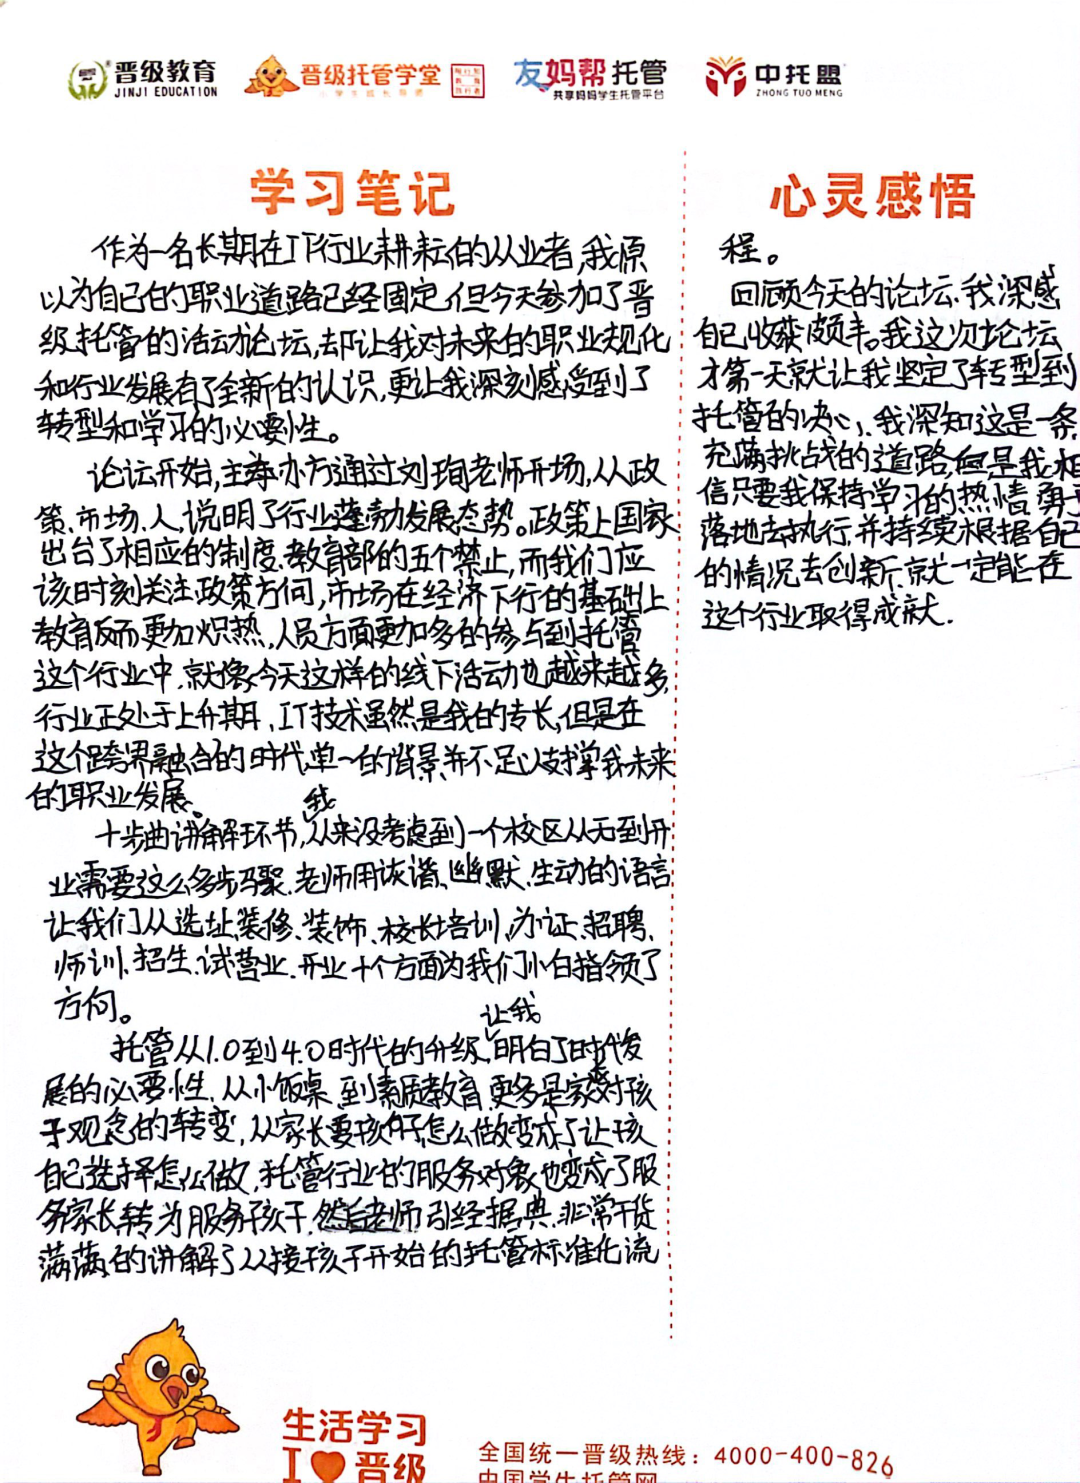 晋级教育
JINJI EDUCATION
晋级托管学堂
友妈帮托管
共享妈妈学生托管平台
中托盟
ZHONG TUO MENG
学习笔记
作为一名长期在IT行业耕耘的从业者,我原
以为自己的职业道路已经固定,但今天参加了晋
级托管的活动论坛,却让我对未来的职业规化
和行业发展有了全新的认识,更让我深刻感受到了
转型和学习的必要性。
论坛开始,主办方通过刘珣老师开场,从政
策、市场、人,说明了行业蓬勃发展态势。政策上国家
出台了相应的制度、教育部的五个禁止,而我们应
该时刻关注政策方向,市场在经济下行的基础上
教育反而更加炽热,人员方面更加多的参与到托管
这个行业中,就像今天这样的线下活动也越来越多,
行业正处于上升期,IT技术虽然是我的专长,但是在
这个跨界融合的时代,单一的背景并不足以支撑我未来
的职业发展。
十步曲讲解环节,我从来没考虑到一个校区从无到开
业需要这么多步骤.老师用诙谐、幽默、生动的语言
让我们从选址、装修、装饰、校长培训、办证、招聘、
师训、招生、试营业、开业十个方面为我们小白指领了
方向。
托管从1.0到4.0时代的升级,让我明白了时代发
展的必要性,从小饭桌到素质教育,更多是家长对孩
子观念的转变,从家长要孩子怎么做变成了让孩
自己选择怎么做,托管行业的服务对象也变成了服
务家长转为服务孩子.然后老师引经据典,非常干货
满满的讲解了从接孩子开始的托管标准化流
心灵感悟
程。
回顾今天的论坛,我深感
自己收获颇丰。我这次论坛
才第一天就让我坚定了转型到
托管的决心,我深知这是一条
充满挑战的道路,但是我相
信只要我保持学习的热情,勇于
落地去执行,并持续根据自己
的情况去创新,就一定能在
这个行业取得成就.
生活学习
I❤晋级
全国统一晋级热线：4000-400-826
中国学生托管网